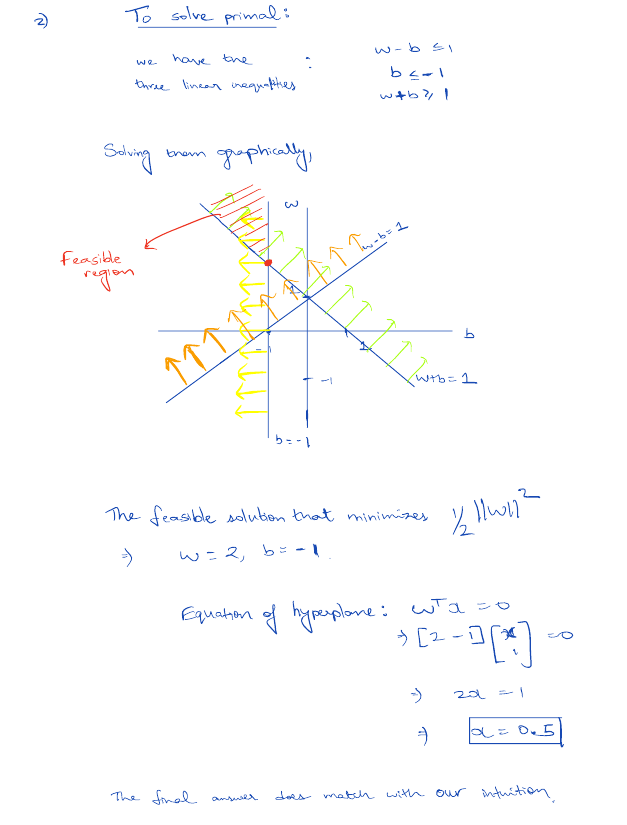 2) To solve primal:
we have the : w - b ≤ 1
three linear inequalities b ≤ -1
w + b ≥ 1
Solving them graphically,
w
w-b=1
Feasible
region
1
b
-1
1
-1
w+b=1
b=-1
The feasible solution that minimizes 1/2 ||w||²
⇒ w = 2, b = -1.
Equation of hyperplane: wᵀx = 0
⇒ [2 -1] [x 1] = 0
⇒ 2x = 1
⇒ x = 0.5
The final answer does match with our intuition.